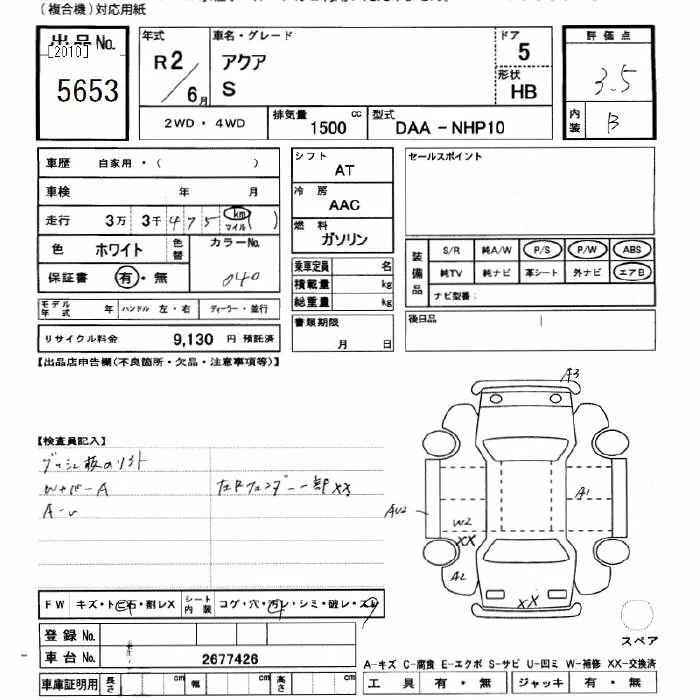 (複合機)対応用紙
出品No.
[2010]
5653
年式
R2/6月
車名・グレード
アクア
S
ドア
5
形状
HB
2WD・4WD
排気量
1500cc
型式
DAA-NHP10
評価点
3.5
内装
B
車歴 自家用・( )
車検 年 月
走行 3万 3千 475 km マイル ( )
色 ホワイト 色替 カラーNo.
保証書 有・無 040
モデル年式 年 ハンドル 左・右 ディーラー・並行
リサイクル料金 9,130 円 預託済
シフト
AT
冷房
AAC
燃料
ガソリン
乗車定員 名
積載量 kg
総重量 kg
書類期限
月 日
セールスポイント
装備品
S/R 純A/W P/S P/W ABS
純TV 純ナビ 革シート 外ナビ エアB
ナビ型番:
後日品
【出品店申告欄(不良箇所・欠品・注意事項等)】
【検査員記入】
A3
A1
AU2
W2
XX
A2
XX
FW キズ・トビ石・割レX シート内装 コゲ・穴・汚レ・シミ・破レ・スレ
登録No.
車台No. 2677426
車庫証明用 長さ cm 幅 cm 高さ cm
スペア
A-キズ C-腐食 E-エクボ S-サビ U-凹ミ W-補修 XX-交換済
工具 有・無 ジャッキ 有・無